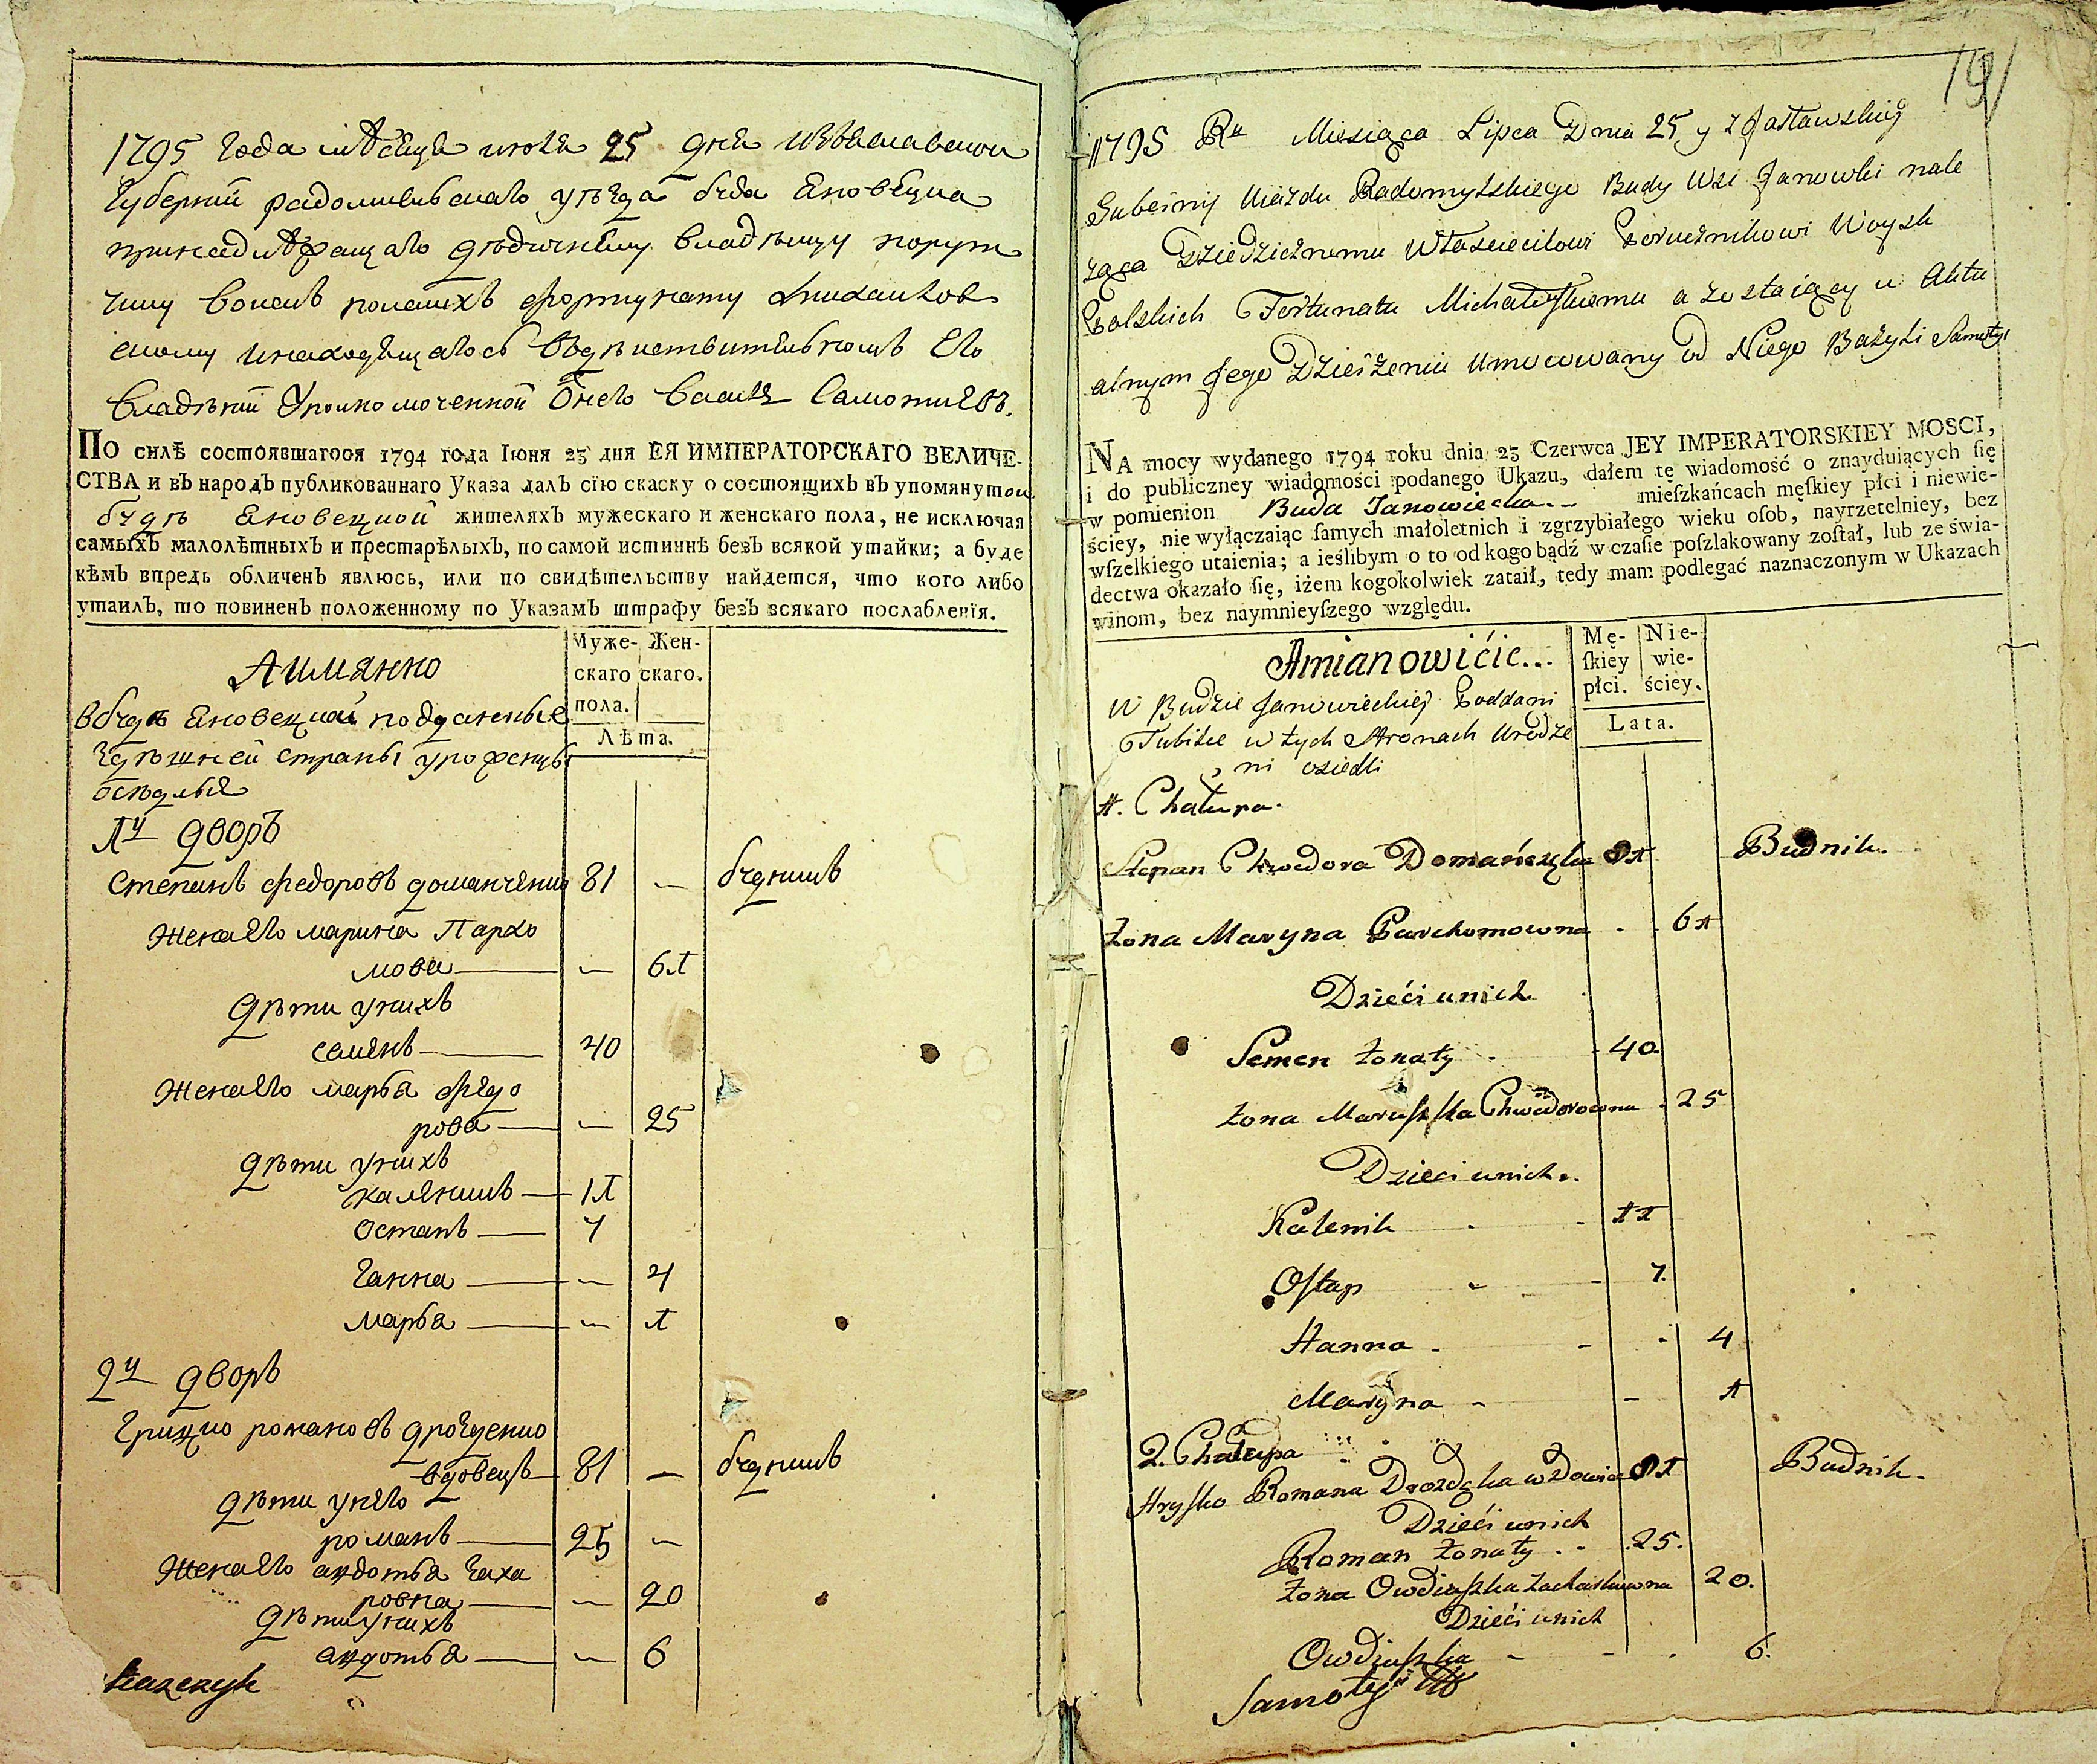 1795 года мѣсяца июля 25 дня Изяславской
губернии радомисльскаго уѣзда буда Яновецка
принадлѣжащаго дѣдичному владѣльцу порут
чику войскъ полскихъ фортунату михалков
скому инаходящагось вдѣйствительномъ его
владѣнии Уполномоченной Онего василь Самотиевъ.
ПО силѣ состоявшагося 1794 года Іюня 23 дня ЕЯ ИМПЕРАТОРСКАГО ВЕЛИЧЕ-
СТВА и въ народъ публикованнаго Указа далъ сїю скаску о состоящихъ въ упомянутой
будѣ Яновецкой жителяхъ мужескаго и женскаго пола, не исключая
самыхъ малолѣтныхъ и престарѣлыхъ, по самой истиннѣ безъ всякой утайки; а буде
кѣмъ впредь обличенъ явлюсь, или по свидѣтельству найдется, что кого либо
утаилъ, то повиненъ положенному по Указамъ штрафу безъ всякаго послабленїя.
Муже- Жен-
скаго скаго.
пола.
Лѣта.
Аимянно
вбудѣ Яновецкой подданные
здѣшней страны уроженцы
осѣдлыя
1й дворъ
Степанъ федоровъ доманченко 81 — будникъ
Жена его марина Пархо
мова — — 61
дѣти унихъ
семенъ — 40
Жена его марья федо
рова — — 25
дѣти унихъ
каленикъ — 11
остапъ — 7
ганна — — 4
марья — — 1
2й дворъ
грицко романовъ дрозденко
вдовецъ — 81 — будникъ
дѣти унего
романъ — 25 —
Жена его авдотья заха
ровна — — 20
дѣти унихъ
авдотья — — 6
191
1795 Ru Miesiąca Lipca Dnia 25 y z Jasławskiey
Gubernij Uiazdu Radomyslskiego Budy Wsi Janowki nale
rząca Dziedzicznemu Włascicilowi Porucznikowi Woysk
Polskich Fortunatu Michałowskiemu a zostaiący w Aktu
alnym Jego Dzierżeniu Umocowany od Niego Bazyli Samotyi
NA mocy wydanego 1794 roku dnia 23 Czerwca JEY IMPERATORSKIEY MOSCI,
i do publiczney wiadomości podanego Ukazu, dałem tę wiadomość o znayduiących ſię
w pomienion Buda Janowiecka.- mieſzkańcach męſkiey płci i niewie-
ściey, nie wyłączaiąc ſamych małoletnich i zgrzybiałego wieku oſob, nayrzetelniey, bez
wſzelkiego utaienia; a ieślibym o to od kogo bądź w czaſie poſzlakowany zoſtał, lub ze świa-
dectwa okazało ſię, iżem kogokolwiek zataił, tedy mam podlegać naznaczonym w Ukazach
winom, bez naymnieyſzego względu.
Mę- Nie-
ſkiey wie-
płci. ściey.
Lata.
Amianowićie...
W Budzie Janowieckiey Poddani
Tubilce w tych Stronach Urodze
ni osiedli
1. Chałupa.
Stepan Chwedora Domańczyka 81 Budnik.
żona Maryna Parchomowna . 61
Dzieći unich
Semen żonaty . 40.
żona Maruſzka Chwedorowna . 25
Dzieci unich.
Kalenik - 11
Oſtap - 7.
Hanna - - 4
Maryna - - 1
2. Chałupa
Hryſko Romana Drozdęka wdowiec 81 Budnik.
Dzieći unich
Roman żonaty . . 25.
żona Owdiuſzka Zacharkowna 20.
Dzieći unich
Owdiuſzka - - . 6.
Samotyi